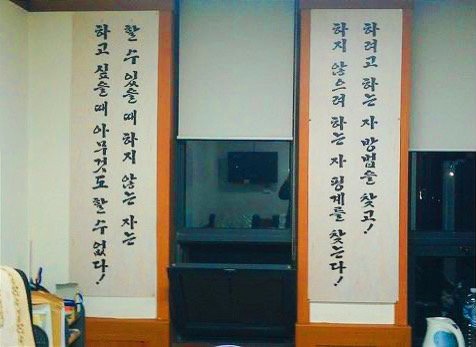 하려고 하는 자 방법을 찾고!
하지 않으려 하는 자 핑계를 찾는다!
할 수 있을 때 하지 않는 자는
하고 싶을 때 아무것도 할 수 없다!